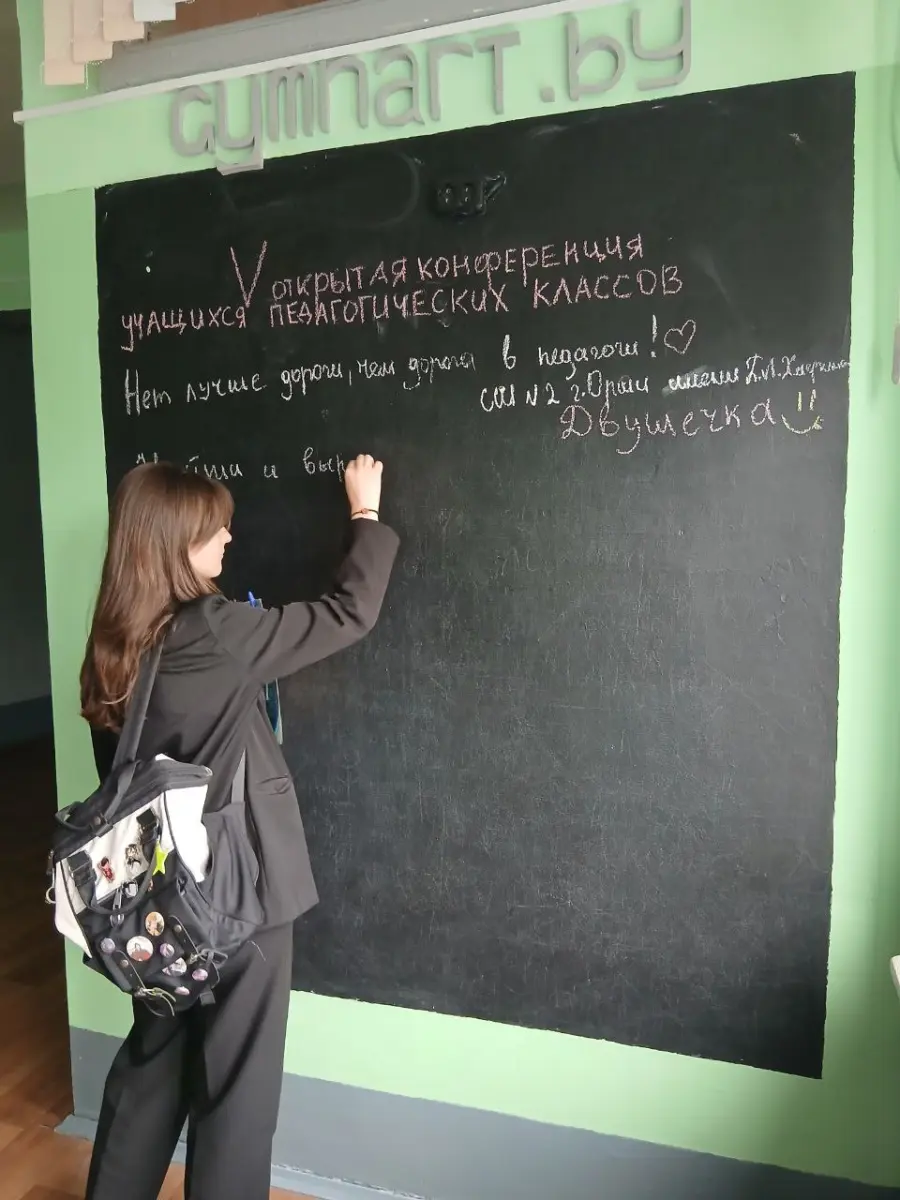 gymnart.by
V ОТКРЫТАЯ КОНФЕРЕНЦИЯ
УЧАЩИХСЯ ПЕДАГОГИЧЕСКИХ КЛАССОВ
Нет лучше дороги, чем дорога в педагоги! ♡
СШ №2 г. Орши имени
Двушечка
и